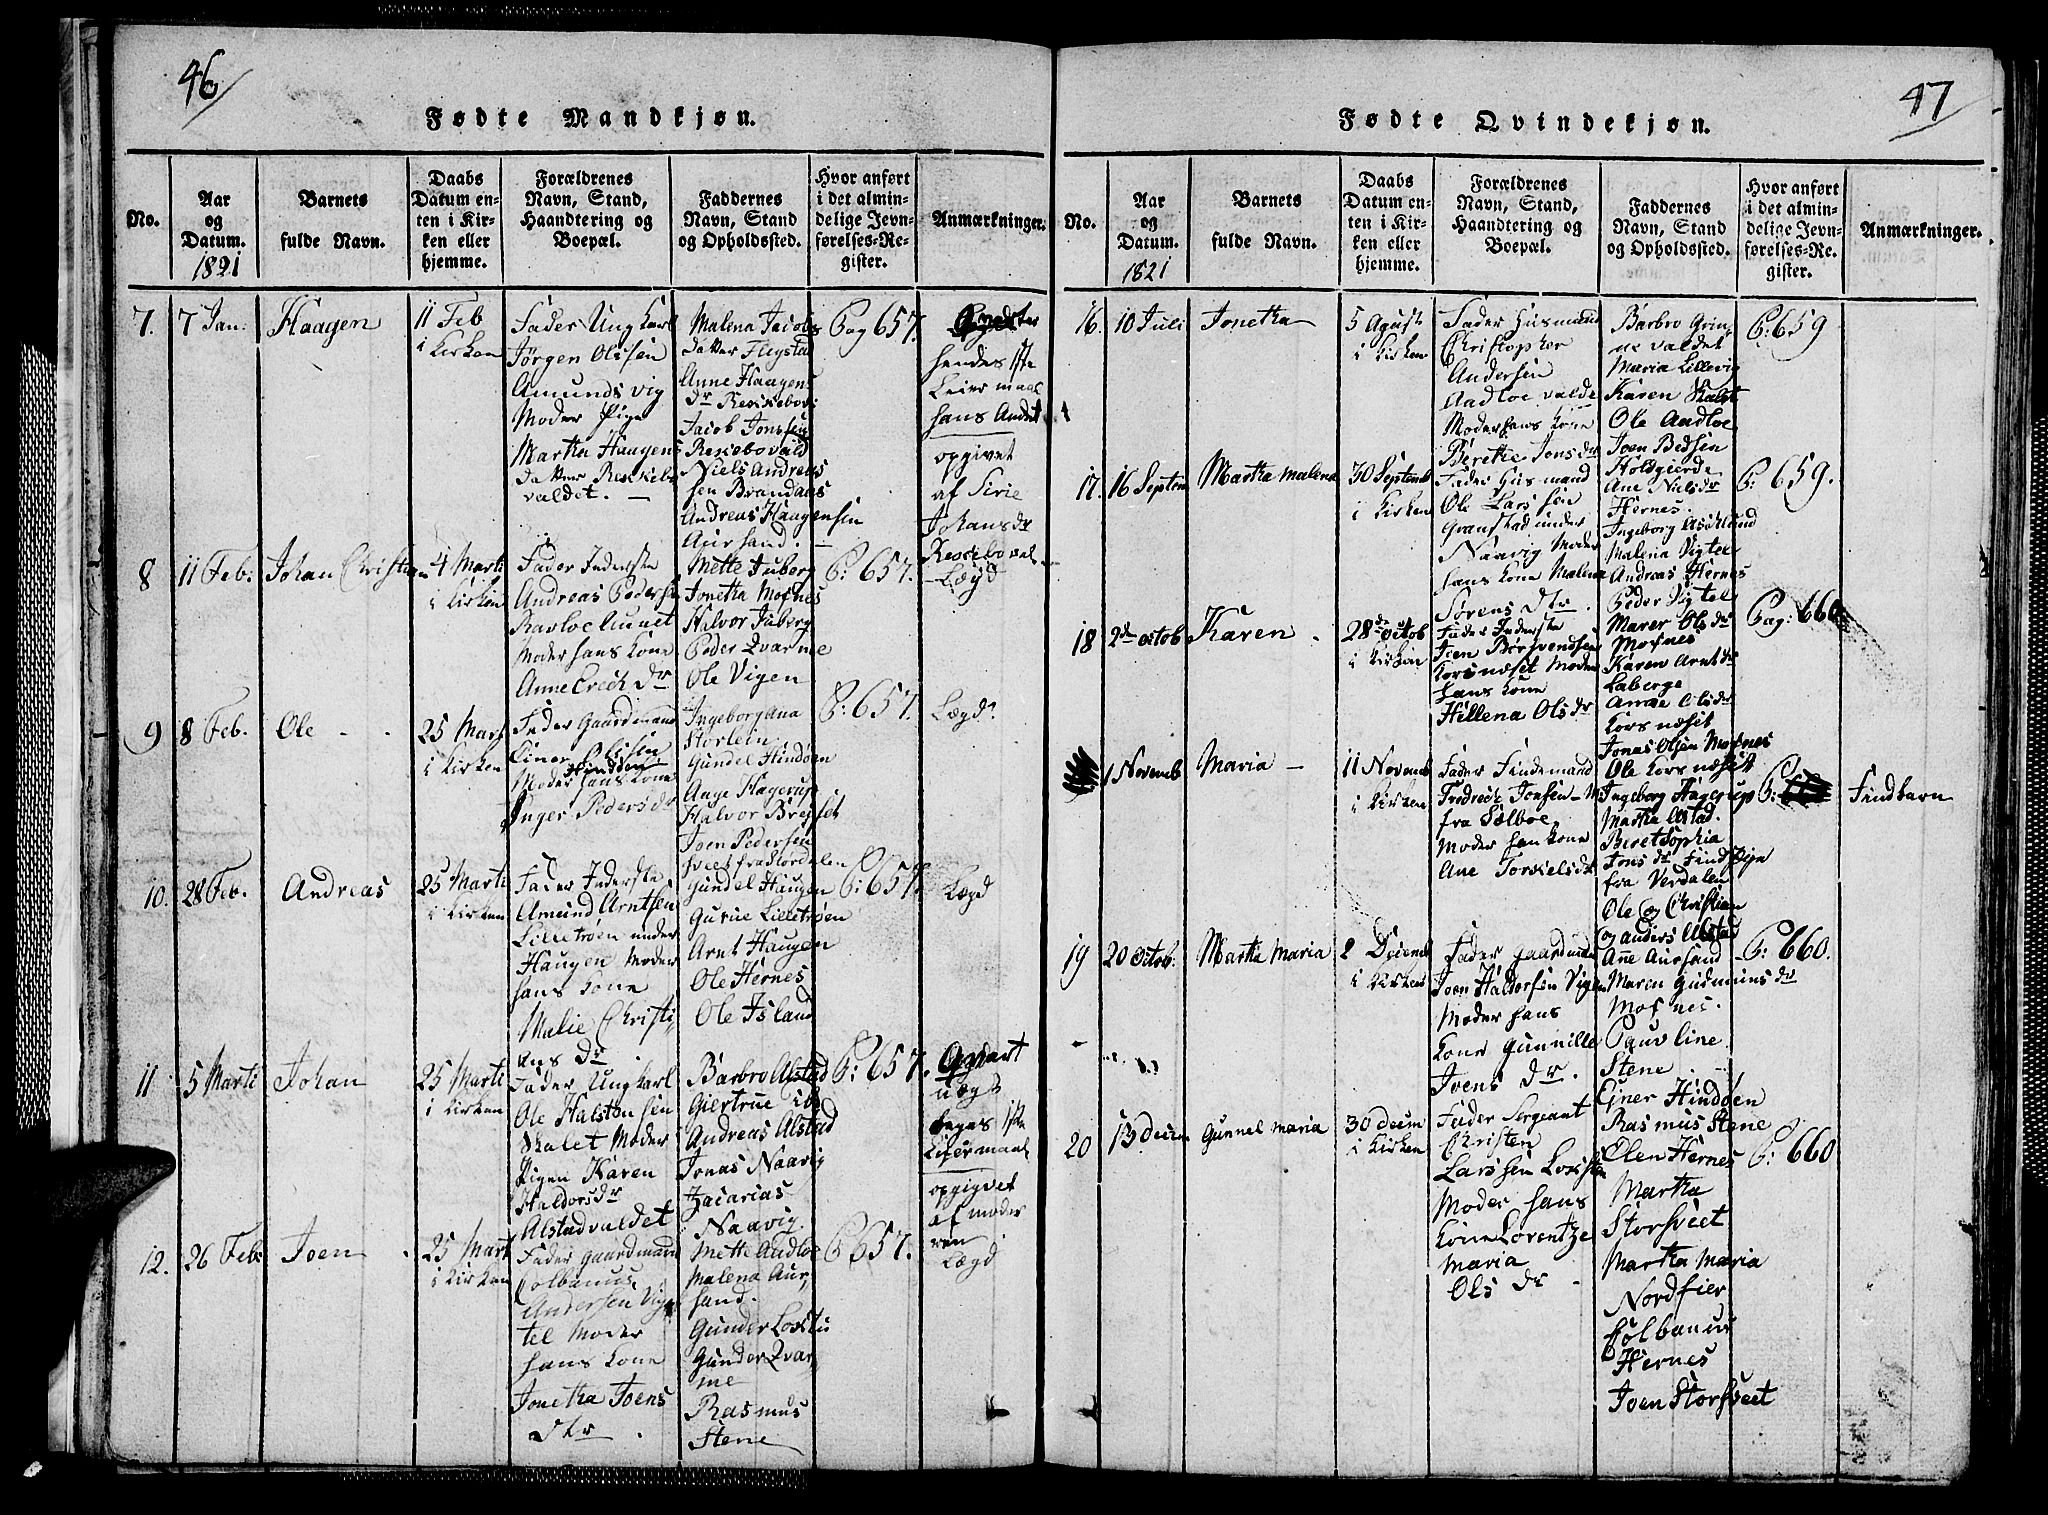 46
Fødte Mandkjøn.
No.
Aar
og
Datum.
1821
Barnets
fulde Navn.
Daabs
Datum en-
ten i Kir-
ken eller
hjemme.
Forældrenes
Navn, Stand,
Haandtering og
Boepæl.
Faddernes
Navn, Stand
og Opholdssted.
Hvor anført
i det almin-
delige Jevn-
førelses-Re-
gister.
Anmærkninger.
7.
7 Jan:
Haagen
11 Feb
i Kirken
Fader Ungkarl
Jörgen Olsen
Amunds vig
Moder Pige
Martha Haagens
datter Reskebo
valdet.
Malena Jacobs
datter
Anne Haagens
dr
Jacob Jonssen
Niels Andreas
sen Brandaas
Andreas Haagensen
Aursand.
Pag 657.
hendes 1ste
Leiermaal
hans Andet
opgivet
af Sirie
Johansdr
Lægd
8
11 Feb:
Johan Christian
4 Marti
i Kirken
Fader Inderste
Andreas Pedersen
Moder hans Kone
Anne Erech dr
Mette Inberg
Jonetha Mofnes
Halvor Inberg
Peder Qvarme
Ole Vigen
P: 657.
9
8 Feb.
Ole
25 Mart
i Kirken
Fader Gaardmand
Einer Olsen
Hindöen
Moder hans Kone
Inger Pedersdr
Ingeborg Ana
Storlein
Gundel Hindöen
Ange Hagerup
Halvor Bresset
Joen Pedersen
Sveet fra Stordalen
P: 657.
Lægd.
10.
28 Feb.
Andreas
25 Marti
i Kirken
Fader Inderste
Amund Arntsen
Lilletröen under
Haugen Moder
hans Kone
Malie Christi
ans dr
Gundel Haugen
Gurue Lilletröen
Arnt Haugen
Ole Hernes
Ole Island
P: 657.
Lægd
11
5 Marti
Johan
25 Marti
i Kirken
Fader Ungkarl
Ole Halstensen
Skalet Moder
Pigen Karen
Haldorsdr
Alstadvaldet
Barbro Alstad
Giertrue ibd
Andreas Alstad
Jonas Naavig
Zacarias
Naavig.
P: 657.
begges 1ste
Leiermaal
opgivet
af moder
ren
Lægd
12.
26 Feb:
Joen
25 Mart
i Kirken
Fader gaardmand
Colbanus
Andersen Vig
tel Moder
hans Kone
Jonetha Joens
dtr
Mette Aadloe
Malena Aur
sand.
Gunder Loktu
Gunder Qvar
me
Rasmus
Stene
P 657.
47
Fødte Qvindekjøn.
No.
Aar
og
Datum.
1821
Barnets
fulde Navn.
Daabs
Datum en-
ten i Kir-
ken eller
hjemme.
Forældrenes
Navn, Stand,
Haandtering og
Boepæl.
Faddernes
Navn, Stand
og Opholdssted.
Hvor anført
i det almin-
delige Jevn-
førelses-Re-
gister.
Anmærkninger.
16.
10 Juli
Jonetha
5 Agust
i Kirken
Fader Husmand
Christopher
Andersen
Aadloe valde
Moder hans Kone
Berethe Jonsdr
Barbro Grin
ne valdet
Maria Lillevig
Karen Skalet
Ole Aadloe
Joen
P: 659
17.
16 Septem
Martha Malena
30 Septemb
i Kirken
Fader Husmand
Ole Larssen
Granstad under
Naavig Moder
hans Kone Malena
Sörens dtr.
Holsgierde
Ane Nielsdr
Hernes.
Ingeborg
Malena Vigtel
Andreas Hernes
Peder Vigtel
P: 659.
18
2de octob
Karen
28de octob
i Kirken
Fader Inderste
Joen
Korsnæset Moder
hans Kone
Hellena Olsdr
Maret Olsdr
Mofnes
Karen Arntdr
Laberge
Anne Olsdr
Korsnæset
Jonas Olsen Mofnes
Ole Korsnæset
Pag: 660
1 Novemb
Maria
11 Novemb
i Kirken
Fader Findemand
Fredrech Jonsen
fra Selboe
Moder han Kone
Ane Torkielsdr
Ingeborg Hagerup
Martha Alstad.
Beret Sophia
Jons dr Find Pige
fra Verdalen
Ole og Christian
og anders Alstad
P:
Findbarn
19
20 Octob.
Martha Maria
2 Decemb
i Kirken
Fader gaardman
Joen Haldorsen Vigen
Moder hans
Kone Gunnille
Joens dr.
Ane Aursand
Maren Gudmunsdr
Mofnes.
Pauline
Stene
Einer Hindöen
Rasmus Stene
P: 660.
20
13 decem
Gunnel Maria
30 decm
i Kirken
Fader Sergeant
Christen
Larssen
Moder hans
Kone Lorentze
Maria
Ols dr
Olen Hernes
Martha
Storsveet
Martha Maria
Nordfier
Colbanus
Hernes
Joen Storsveet
P: 660